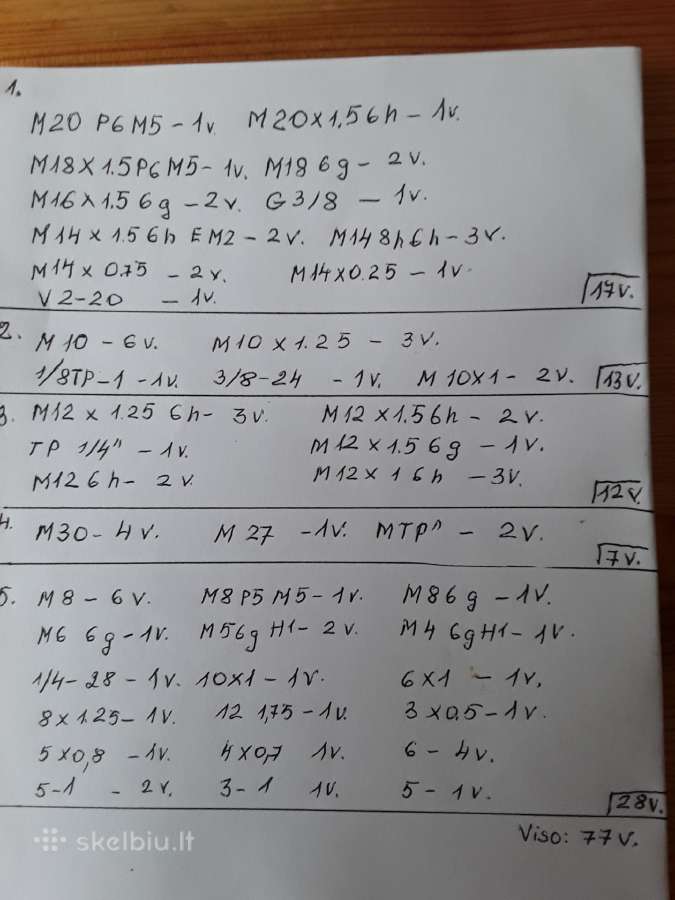 1.
M20 P6M5 - 1v. M20x1,5 6h - 1v.
M18x1.5 P6M5 - 1v. M18 6g - 2v.
M16x1.5 6g - 2v. G 3/8 - 1v.
M14x1.5 6h EM2 - 2v. M14 8h6h - 3v.
M14x0.75 - 2v. M14x0.25 - 1v
V2-20 - 1v. 17v.
2. M10 - 6v. M10x1.25 - 3v.
1/8TP-1 - 1v. 3/8-24 - 1v. M10x1 - 2v. 13v.
3. M12x1.25 6h - 3v. M12x1.5 6h - 2v.
TP 1/4" - 1v. M12x1.5 6g - 1v.
M12 6h - 2v. M12x1 6h - 3v.
12v.
4. M30 - 4v. M27 - 1v. MTP" - 2v.
7v.
5. M8 - 6v. M8 P5M5 - 1v. M8 6g - 1v.
M6 6g - 1v. M5 6g H1 - 2v. M4 6g H1 - 1v.
1/4-28 - 1v. 10x1 - 1v. 6x1 - 1v.
8x1.25 - 1v. 12 1,75 - 1v. 3x0.5 - 1v.
5x0,8 - 1v. 4x0,7 1v. 6 - 4v.
5-1 - 2v. 3-1 1v. 5 - 1v. 28v.
Viso: 77v.
skelbiu.lt